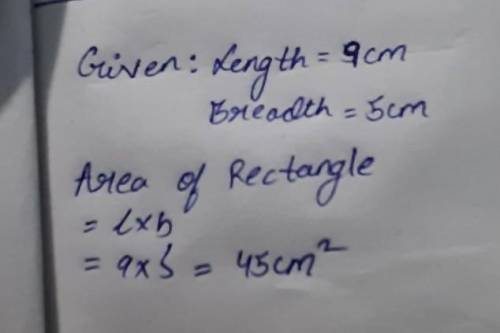 Given: Length = 9cm
Breadth = 5cm
Area of Rectangle
= l×b
= 9×5 = 45cm²